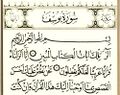 سورة يوسف
بسم الله الرحمن الرحيم
الر تلك ءايت الكتب المبين إنا أنزلنه
قرءنا عربيا لعلكم تعقلون نحن نقص عليك
أحسن القصص بما أوحينا إليك